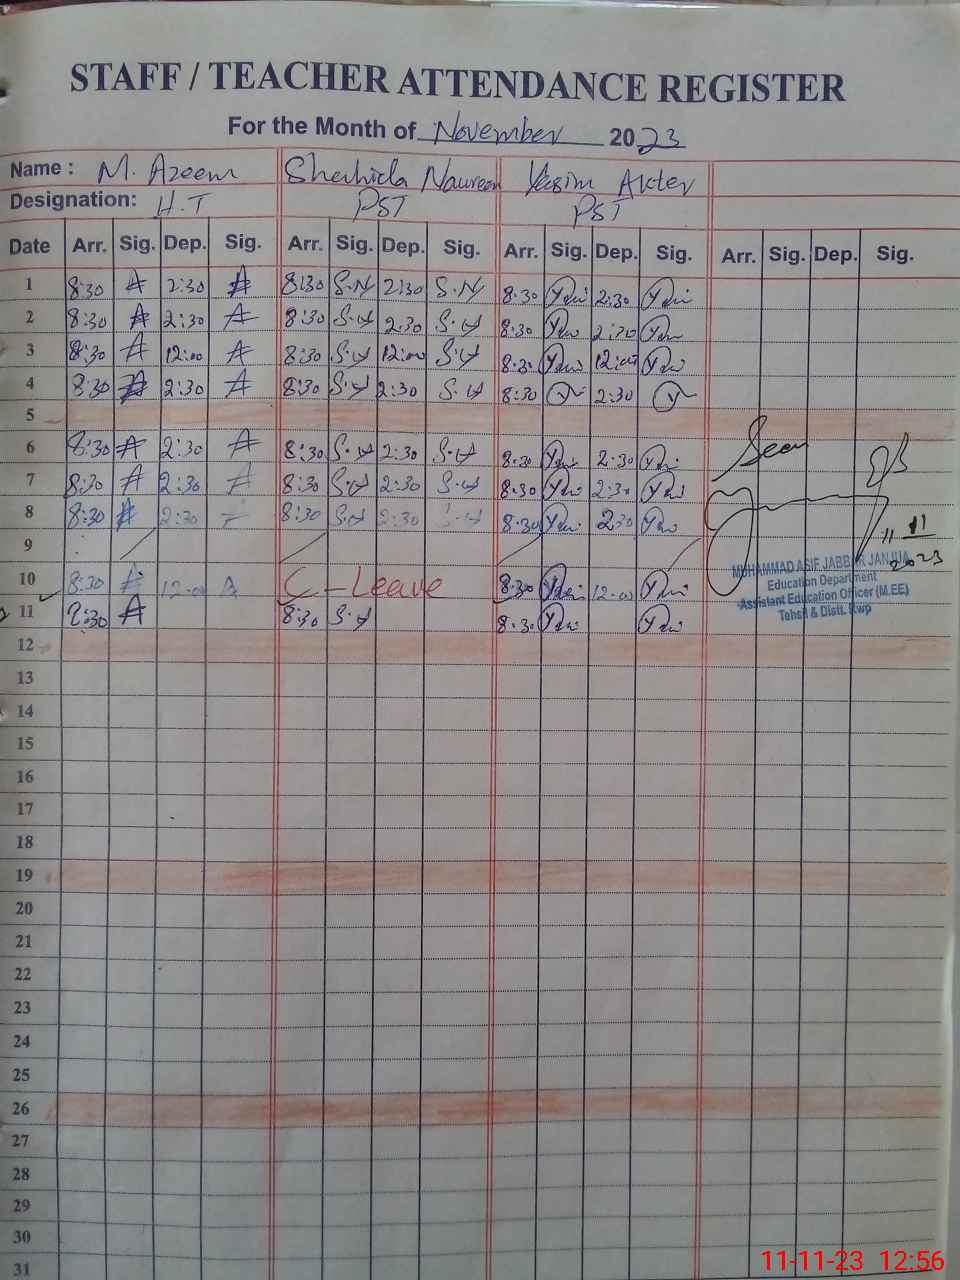 STAFF / TEACHER ATTENDANCE REGISTER
For the Month of November 2023
Name : M. Azeem Shahida Naureen Yasim Akter
Designation: H.T PST PST
Date Arr. Sig. Dep. Sig. Arr. Sig. Dep. Sig. Arr. Sig. Dep. Sig. Arr. Sig. Dep. Sig.
1 8:30 A 2:30 A 8:30 S.N 2:30 S.N 8:30 2:30
2 8:30 A 2:30 A 8:30 S.N 2:30 S.N 8:30 2:30
3 8:30 A 12:00 A 8:30 S.N 12:00 S.N 8:30 12:00
4 8:30 A 2:30 A 8:30 S.N 2:30 S.N 8:30 2:30
5
6 8:30 A 2:30 A 8:30 S.N 2:30 S.N 8:30 2:30 Seen
7 8:30 A 2:30 A 8:30 S.N 2:30 S.N 8:30 2:30
8 8:30 A 2:30 8:30 S.N 2:30 S.N 8:30 2:30
9
11 11 2023
MUHAMMAD ASIF JABBAR JANJUA
Education Department
Assistant Education Officer (M.EE)
Tehsil & Distt. Rwp
10 8:30 A 12:00 A C-Leave 8:30 12:00
11 8:30 A 8:30 S.N 8:30
12
13
14
15
16
17
18
19
20
21
22
23
24
25
26
27
28
29
30
31
11-11-23 12:56